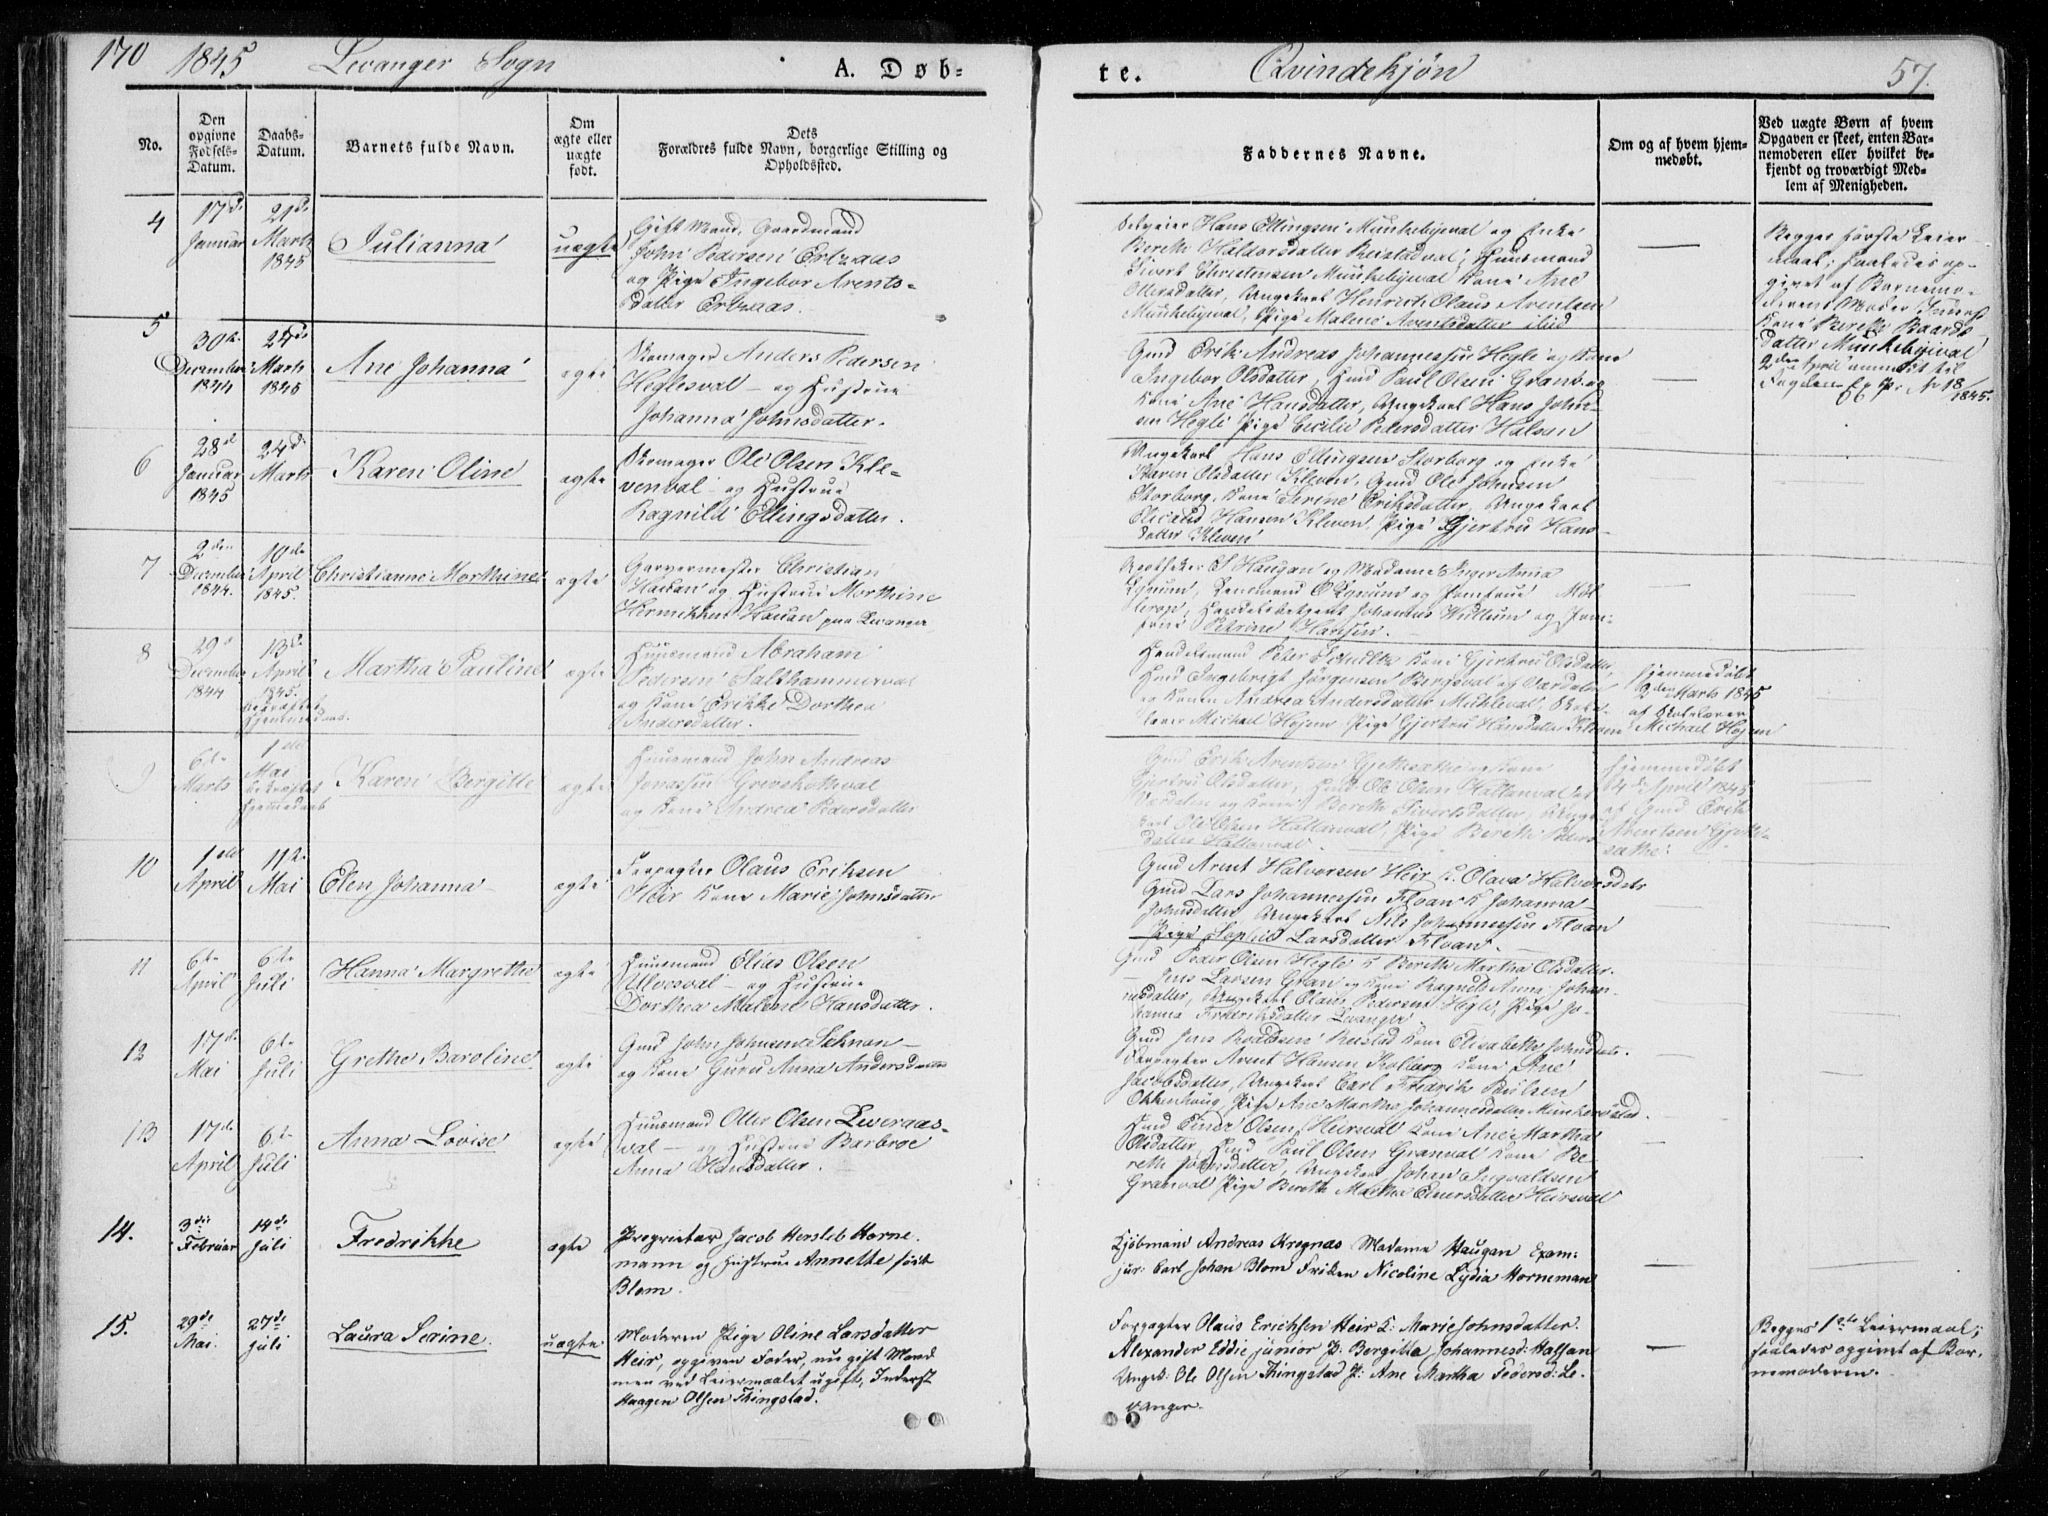 170
1845
Levanger Sogn
A. Døb-
te.
Qvindekjøn
57.
No.
Den opgivne Fødsels-Datum.
Daabs-Datum.
Barnets fulde Navn.
Om ægte eller uægte født.
Dets Forældres fulde Navn, borgerlige Stilling og Opholdssted.
Faddernes Navne.
Om og af hvem hjem-medøbt.
Ved uægte Børn af hvem Opgaven er skeet, enten Bar-nemoderen eller hvilket be-kjendt og troværdigt Med-lem af Menigheden.
4
17de Januar
21de Marts 1845
Julianna
uægte
Gift Mand, Gaardmand
John Pedersen Ertzaas
og Pige Ingebor Arents-
datter Ertzaas.
Hans Ellingsen Munkebyeval og Enke
Bereth Haldorsdatter Reistadval, Huusmand
Sivert Christensen Munkebyeval Kone Ane
Ottersdatter, Ungekarl Henrik Olaus Arentsen
Munkebyeval, Pige Malene Arentsdatter ibid
Begges første Leier-
maal; saaledes op-
givet af Barnemo-
derens Moder
Kone Bereth Baards
datter Munkebyeval
2den April anmeldt til
Fogden
1845.
5
30te December 1844
24de Marts 1845
Ane Johanna
ægte
Skomager Anders Pedersen
Heglesval – og Hustrue
Johanna Johnsdatter.
Gmd Erik Andreas Johannessen Hegle og Kone
Ingebor Olsdatter, Huusmd Paul Olsen Gran og
Kone Ane Hansdatter, Ungekarl Hans John-
sen Hegle Pige Cecilie Pedersdatter Halsen
6
28de Januar 1845
24de Marts
Karen Oline
ægte
Skomager Ole Olsen Kle-
venval – og Hustrue
Ragnild Ellingsdatter.
Ungekarl Hans Ellingsen Storborg og Enke
Karen Olsdatter Kleven, Gmd Ole Johnsen
Storborg, Kone Serine Eriksdatter, Ungekarl
Hansen Kleven, Pige Gjertru Hans-
datter Kleven
7
2den December 1844.
10de April 1845.
Christianne Morthine
ægte
Garvermester Christian
Hauan og Hustrue Morthine
Hermikken Hauan paa Levanger
Apotheker Haugan og Madame Inger Anna
Lynum, Lensmand O Lynum og Jomfrue Møl
Johannes Wullum og Jom-
frue Petrine Hansen.
8
29de December 1844
13de April 1845.
Martha Pauline
ægte
Huusmand Abraham
Pedersen Salthammerval
og Kone Erikke Dorthea
Andersdatter.
Handelsmand Peter Kone Gjertru Olsdatter,
Huusmd Ingebrigt Jørgensen Bergsval af Værdalen
og Konen Andrea Andersdatter Mithleval, Skole-
lærer Michael Hojem Pige Gjertru Hansdatter Kleven
Hjemmedøbt
2den Marts 1845
af Skolelærer
Michael Hojem
9
6te Marts
1ste Mai
Karen Bergitte
ægte
Huusmand John Andreas
Jonassen
og Kone Andrea Pedersdatter
Gmd Erik Arentsen Gjethsathe og Kone
Gjertru Olsdatter, Huusmd Ole Olsen Hallanval af
Værdalen og Kone Bereth Sivertsdatter, Unge-
karl Ole Olsen Hallanval, Pige Bereth Peders
datter Hallanval.
Hjemmedøbt
4de April 1845
af Gmd Erik
Arentsen Gjeth-
sathe.
10
1ste April
11te Mai
Elen Johanna
ægte
Forpagter Olaus Eriksen
Heir Kone Marie Johnsdatter
Gmd Arent Halvorsen Heir K. Olava Halvorsdatr
Gmd Lars Johannessen Floan K Johanna
Johnsdatter Ungekarl Nils Johannessen Floan
Pige Sophie Larsdatter Floan.
11
6te April
6te Juli
Hanna Margrethe
ægte
Huusmand Elias Olsen
Ulvesval – og Hustrue
Dorthea Malene Hansdatter.
Gmd Peder Olsen Hegle K Bereth Martha Olsdatter.
Jens Larsen Gran og Kone Ragnild Anna Johan-
nesdatter, Ungekarl Olaus Pedersen Hegle, Pige Jo-
hanna Fredriksdatter Levanger.
12
17de Mai
6te Juli
Grethe Baroline
ægte
Gmd John Johnsen Schnon –
og Kone Guru Anna Andersdatter
Gmd Jens Reistad Kone Elisabeth Johnsdatr.
Forpagter Arent Hansen Kolberg Kone Ane
Jacobsdatter, Ungekarl Carl Fredrik Poulsen
Okkenhaug, Pige Ane Martha Johannesdatter Munkerøstad.
13
17de April
6te Juli
Anna Lovise
ægte
Huusmand Otter Olsen Leveraas-
val – og Hustrue Barbroe
Anna Hansdatter.
Huusmd Einer Olsen Heirsval Kone Ane Martha
Olsdatter, Huusmd Paul Olsen Granval Kone Be-
reth Johnsdatter, Ungekarl Johan Ingvaldsen
Granval Pige Bereth Martha Einersdatter Heirsval
14.
3die Februar
14de Juli
Fredrikke
ægte
Proprietær Jacob Hersleb Horne-
mann og Hustrue Annette født
Blom.
Kjøbmand Andreas Kregnæs Madame Haugan Exam:
jur: Carl Johan Blom Frøken Nicoline Lydia Horneman
15.
29de Mai.
27de Juli
Laura Serine.
uægte
Moderen Pige Oline Larsdatter
Heir, opgiven Fader, nu gift Mand
men ved Leiermaalet ugift, Inderst
Haagen Olsen Thingstad.
Forpagter Olaus Erichsen Heir K: Marie Johnsdatter.
Alexander Eddie junior P: Bergitta Johannesd: Halsan
Ungek: Ole Olsen Thingstad P: Ane Martha Pedersd: Le-
vanger.
Begges 1ste Leiermaal;
saaledes opgivet af Bar-
nemoderen.